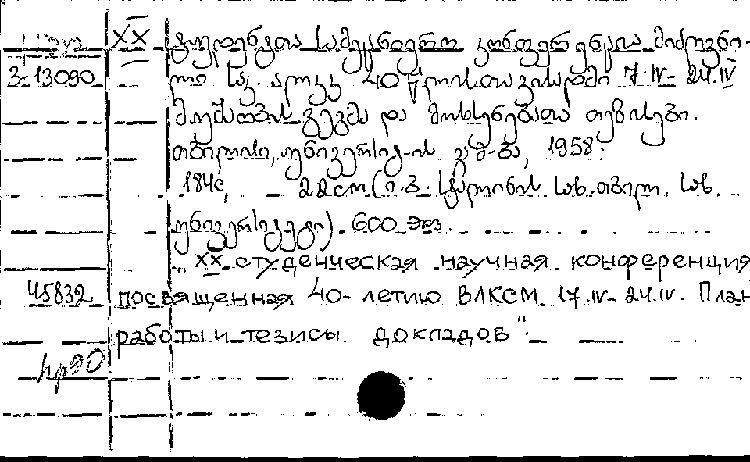 XX სტუდენტთა სამეცნიერო კონფერენცია მიძღვნი-
3-13090 ლი საკ. ალკკ 40 წლისთავისადმი 17.IV-24.IV
მუშაობის გეგმა და მოხსენებათა თეზისები.
თბილისი, უნივერსიტ-ის გამ-ბა, 1958.
184გ, 22cm (ი. ბ. სტალინის სახ. თბილ. სახ.
უნივერსიტეტი). 600 ეგზ.
"XX студенческая научная конференция
45832 посвященная 40-летию ВЛКСМ 17.IV-24.IV. План
работы и тезисы докладов".